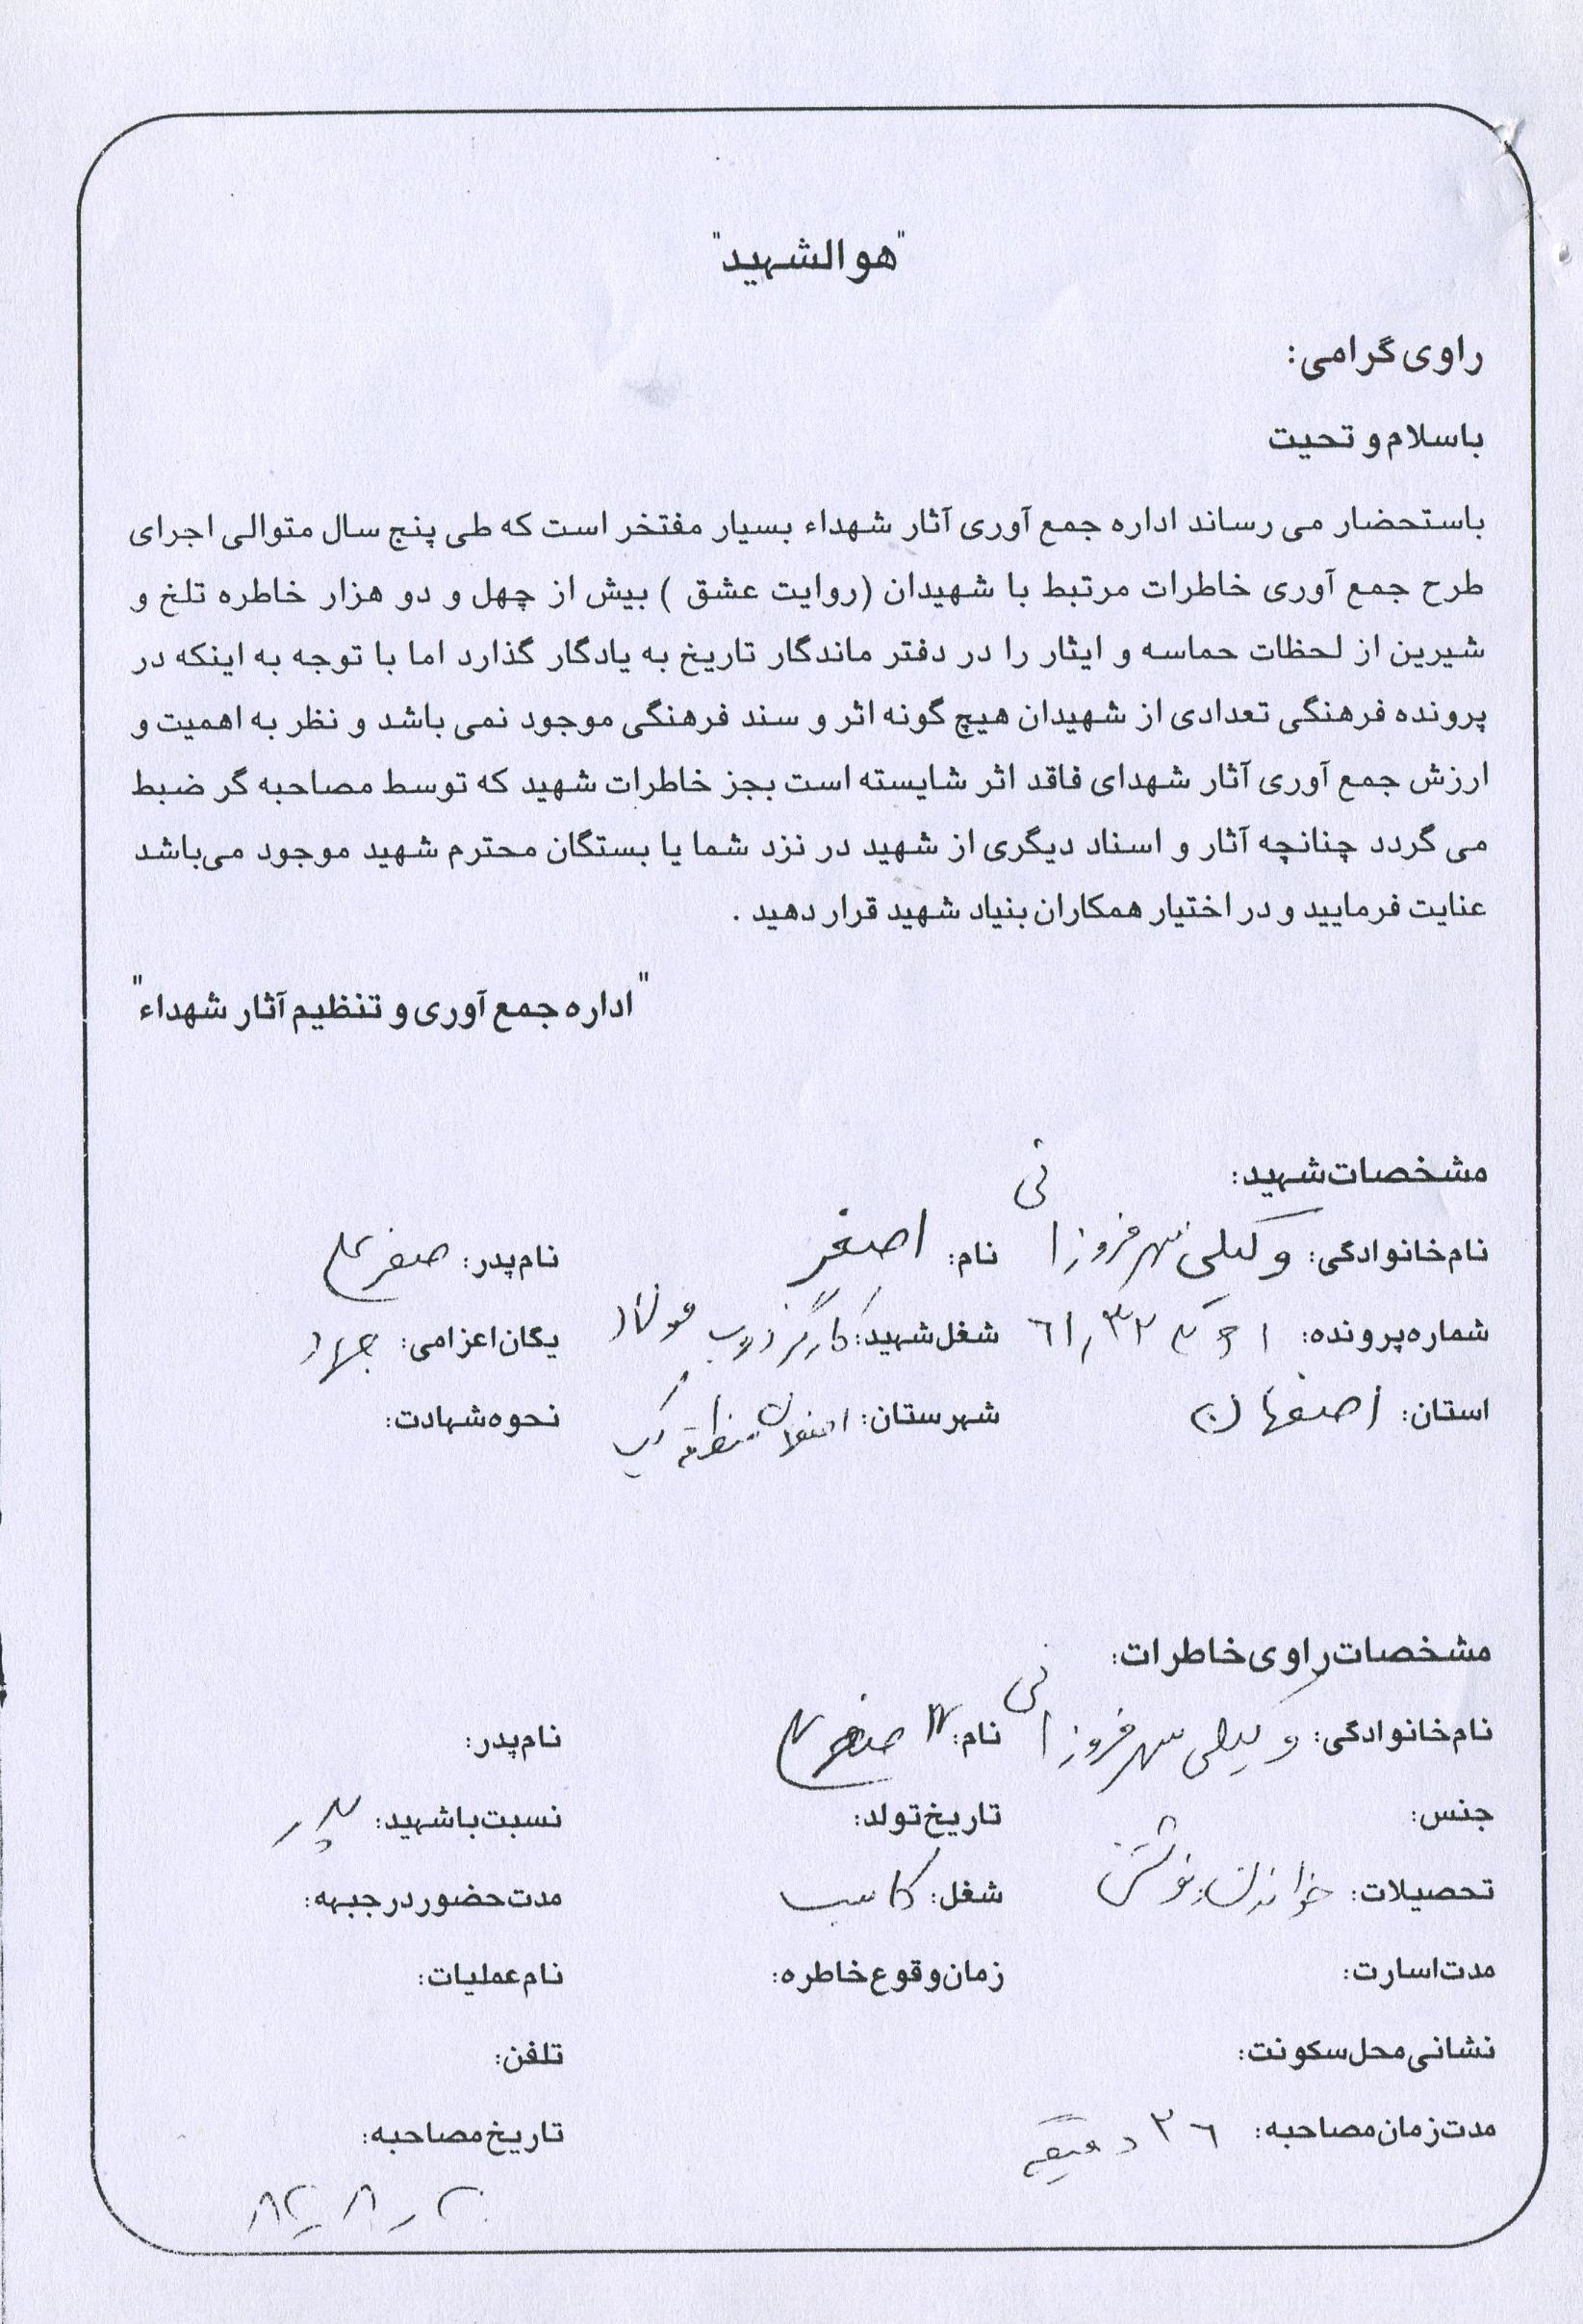 "هوالشهید"
راوی گرامی:
باسلام و تحیت
باستحضار می رساند اداره جمع آوری آثار شهداء بسیار مفتخر است که طی پنج سال متوالی اجرای
طرح جمع آوری خاطرات مرتبط با شهیدان (روایت عشق ) بیش از چهل و دو هزار خاطره تلخ و
شیرین از لحظات حماسه و ایثار را در دفتر ماندگار تاریخ به یادگار گذارد اما با توجه به اینکه در
پرونده فرهنگی تعدادی از شهیدان هیچ گونه اثر و سند فرهنگی موجود نمی باشد و نظر به اهمیت و
ارزش جمع آوری آثار شهدای فاقد اثر شایسته است بجز خاطرات شهید که توسط مصاحبه گر ضبط
می گردد چنانچه آثار و اسناد دیگری از شهید در نزد شما یا بستگان محترم شهید موجود می‌باشد
عنایت فرمایید و در اختیار همکاران بنیاد شهید قرار دهید .
"اداره جمع آوری و تنظیم آثار شهداء"
مشخصات شهید:
نام خانوادگی: وکیلی سهرفروزانی نام: اصغر نام پدر: صفرعلی
شماره پرونده: شغل شهید: کارگر ذوب فولاد یگان اعزامی: جهاد
استان: اصفهان شهرستان: اصفهان منطقه یک نحوه شهادت:
مشخصات راوی خاطرات:
نام خانوادگی: وکیلی سهرفروزانی نام: صفرعلی نام پدر:
جنس: تاریخ تولد: نسبت با شهید: پدر
تحصیلات: خواندن و نوشتن شغل: کاسب مدت حضور در جبهه:
مدت اسارت: زمان وقوع خاطره: نام عملیات:
نشانی محل سکونت: تلفن:
مدت زمان مصاحبه: ۲۶ دقیقه تاریخ مصاحبه: